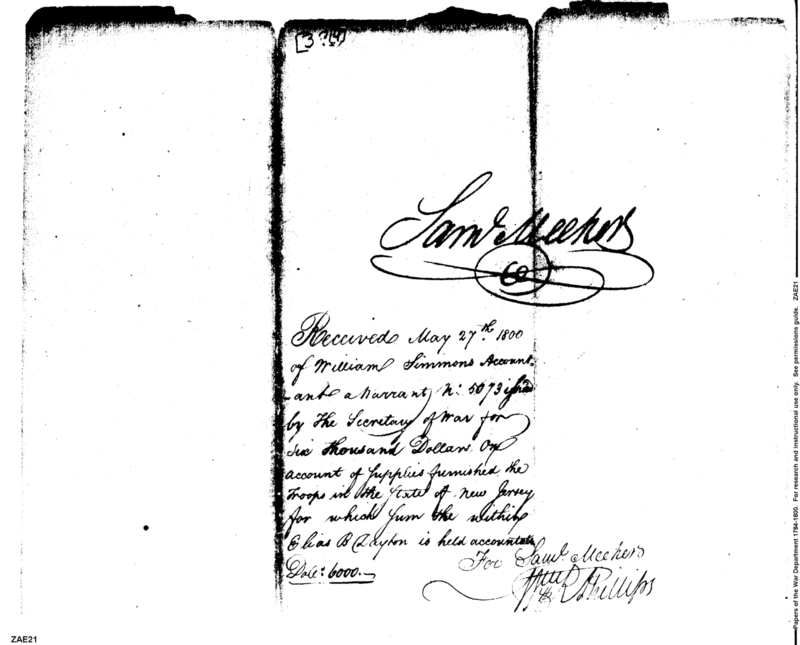 Sam.l Meeker
Co
Received May 27.th 1800
of William Simmons Account
ant a Warrant N.o 5073 issued
by The Secretary of War for
Six thousand Dollars On
account of Supplies furnished the
Troops in the State of New Jersey
for which Sum the within
Elias B Dayton is held accountable
Dols: 6000.—
For Sam.l Meeker
Phillips
ZAE21
Papers of the War Department 1784-1800. For research and instructional use only. See permissions guide. ZAE21